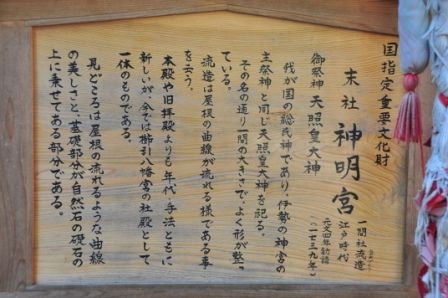 国指定重要文化財
末社 神明宮
一間社流造
江戸時代
元文四年勧請
(一七三九年)
御祭神 天照皇大神
我が国の総氏神であり、伊勢の神宮の
主祭神と同じ天照皇大神を祀る。
その名の通り一間の大きさで、よく形が整っ
ている。
流造は屋根の曲線が流れる様である事
を云う。
本殿や旧拝殿よりも年代・手法ともに
新しいが、今では櫛引八幡宮の社殿として
一体のものである。
見どころは屋根の流れるような曲線
の美しさと、基礎部分が自然石の礎石の
上に乗せてある部分である。